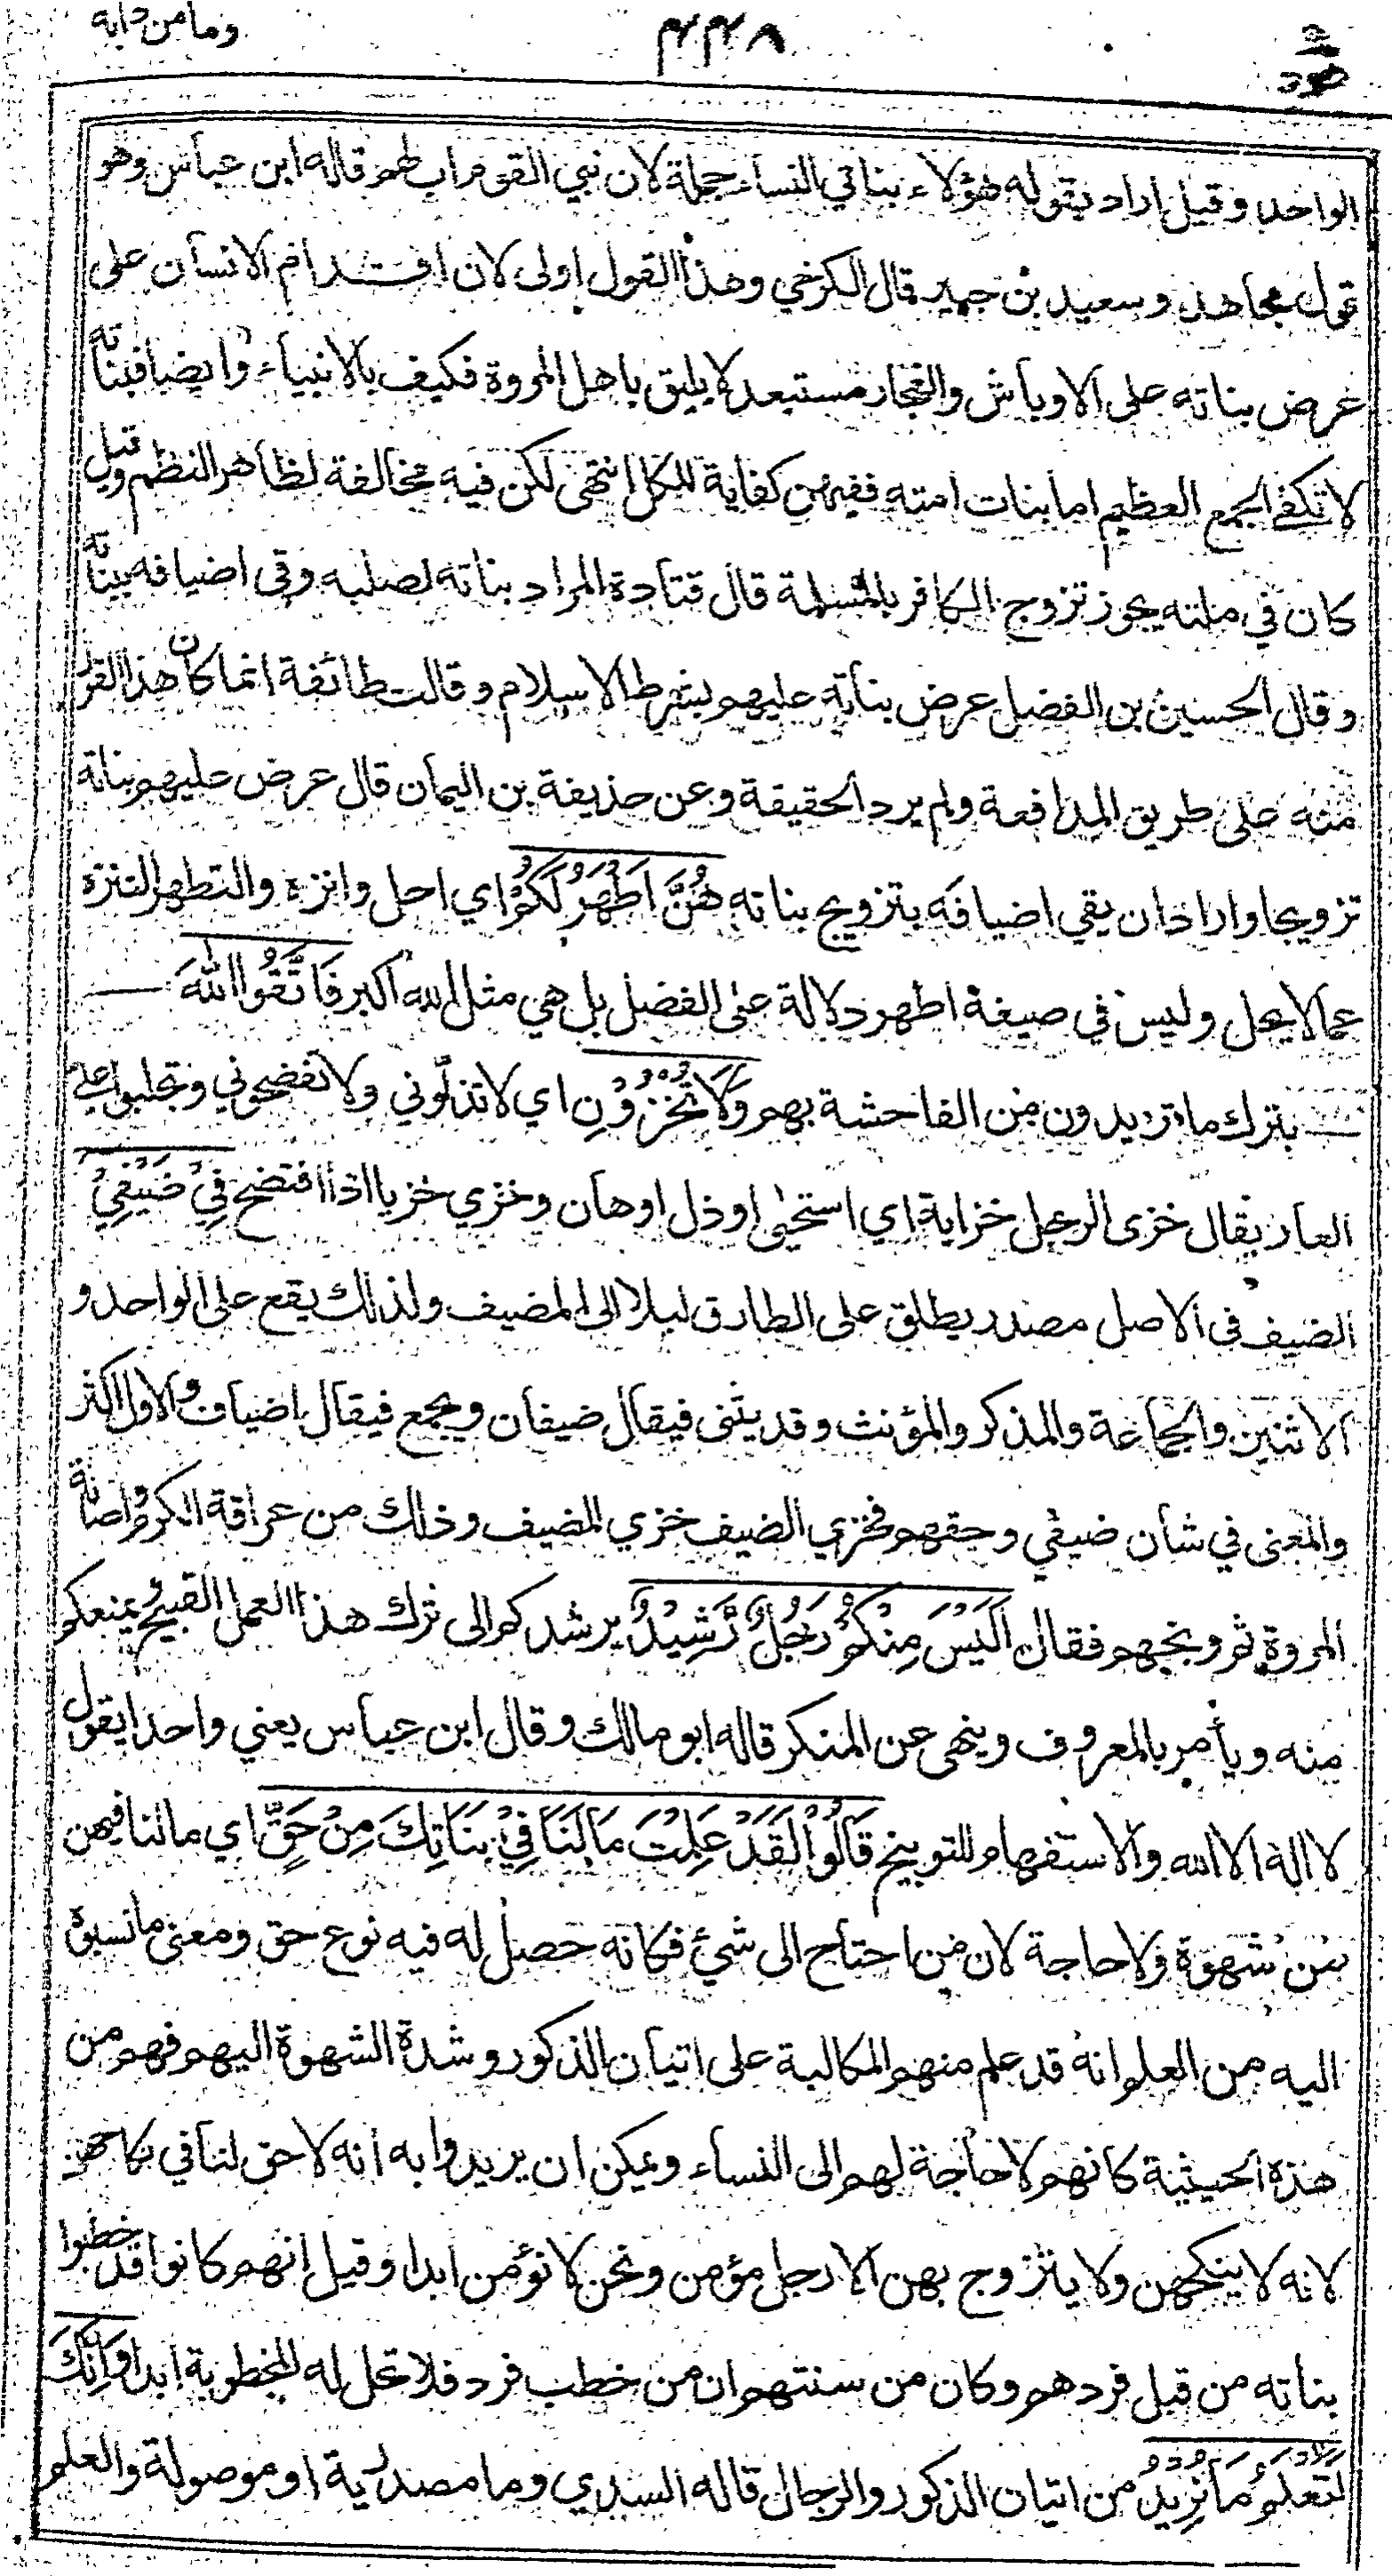 وما من دابة
٤٤٨
هود
الواحد وقيل اراد بقوله هؤلاء بناتي النساء جملة لان نبي القوم اب لهم قاله ابن عباس وهو
قول مجاهد وسعيد بن جبير قال الكرخي وهذا القول اولى لان اقدام الانسان على
عرض بناته على الاوباش والفجار مستبعد لا يليق باهل المروة فكيف بالانبياء وايضا فبناته
لا تكفي الجمع العظيم اما بنات امته ففيهن كفاية للكل انتهى لكن فيه مخالفة لظاهر النظم وقيل
كان في ملته يجوز تزوج الكافر بالمسلمة قال قتادة المراد بناته لصلبه وقى اضيافه ببناته
وقال الحسين بن الفضل عرض بناته عليهم بشرط الاسلام وقالت طائفة انما كان هذا القول
منه على طريق المدافعة ولم يرد الحقيقة وعن حذيفة بن اليمان قال عرض عليهم بناته
تزويجا واراد ان يقي اضيافه بتزويج بناته هُنَّ اَطْهَرُ لَكُمْ اي احل وانزه والتطهر التنزه
عما لا يحل وليس في صيغة اطهر دلالة على الفضل بل هي مثل الله اكبر فَاتَّقُوا اللّٰهَ
بترك ما تريدون من الفاحشة بهم وَلَا تُخْزُوْنِ اي لا تذلوني ولا تفضحوني وتجلبوا علي
العار يقال خزى الرجل خزاية اي استحيى او ذل او هان وخزي خزيا اذا افتضح فِيْ ضَيْفِيْ
الضيف في الاصل مصدر يطلق على الطارق ليلا الى المضيف ولذلك يقع على الواحد و
الاثنين والجماعة والمذكر والمؤنث وقد يثنى فيقال ضيفان ويجمع فيقال اضياف والاول اكثر
والمعنى في شأن ضيفي وحقهم فخزي الضيف خزي المضيف وذلك من عراقة الكرم واصالة
المروة ثم وبخهم فقال اَلَيْسَ مِنْكُمْ رَجُلٌ رَّشِيْدٌ يرشدكم الى ترك هذا العمل القبيح يمنعكم
منه ويأمر بالمعروف وينهى عن المنكر قاله ابو مالك وقال ابن عباس يعني واحدا يقول
لا اله الا الله والاستفهام للتوبيخ قَالُوْا لَقَدْ عَلِمْتَ مَا لَنَا فِيْ بَنَاتِكَ مِنْ حَقٍّ اي ما لنا فيهن
من شهوة ولا حاجة لان من احتاج الى شيئ فكانه حصل له فيه نوع حق ومعنى ما نسبوه
اليه من العلم انه قد علم منهم المكالبة على اتيان الذكور وشدة الشهوة اليهم فهم من
هذه الحيثية كانهم لا حاجة لهم الى النساء ويمكن ان يريدوا به انه لا حق لنا في نكاحهن
لانه لا ينكحهن ولا يتزوج بهن الا رجل مؤمن ونحن لا نؤمن ابدا وقيل انهم كانوا قد خطبوا
بناته من قبل فردهم وكان من سنتهم ان من خطب فرد فلا تحل له المخطوبة ابدا وَاِنَّكَ
لَتَعْلَمُ مَا نُرِيْدُ من اتيان الذكور والرجال قاله السدي وما مصدرية او موصولة والعلم